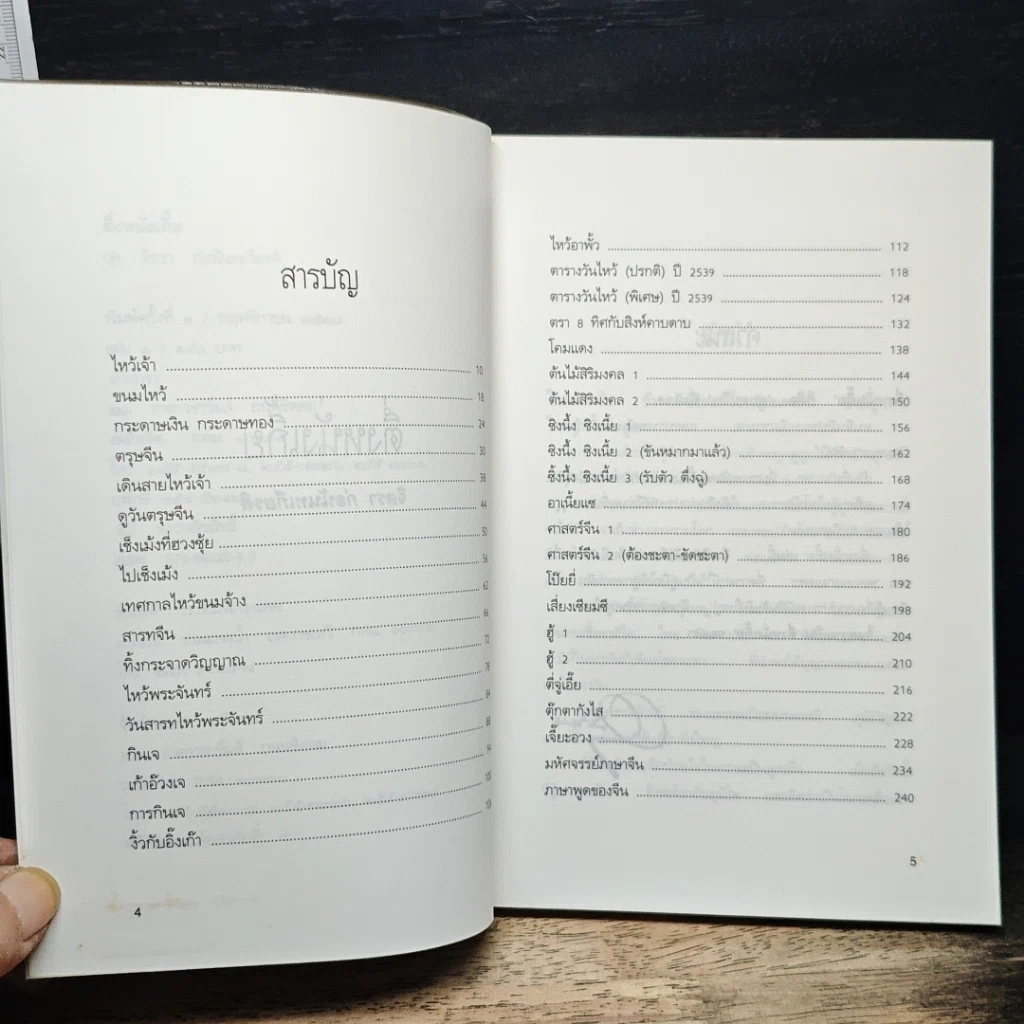 สารบัญ
ไหว้เจ้า 10
ขนมไหว้ 18
กระดาษเงิน กระดาษทอง 24
ตรุษจีน 30
เดินสายไหว้เจ้า 38
ดูวันตรุษจีน 44
เช็งเม้งที่ฮวงซุ้ย 50
ไปเช็งเม้ง 56
เทศกาลไหว้ขนมจ้าง 62
สารทจีน 66
ทิ้งกระจาดวิญญาณ 72
ไหว้พระจันทร์ 78
วันสารทไหว้พระจันทร์ 84
กินเจ 88
เก้าอ๊วงเจ 94
การกินเจ 100
งิ้วกับอิ๊งเก๊า
4
ไหว้อาพั้ว 112
ตารางวันไหว้ (ปรกติ) ปี 2539 118
ตารางวันไหว้ (พิเศษ) ปี 2539 124
ตรา 8 ทิศกับสิงห์คาบดาบ 132
โคมแดง 138
ต้นไม้สิริมงคล 1 144
ต้นไม้สิริมงคล 2 150
ซิงนึ้ง ซิงเนี้ย 1 156
ซิงนึ้ง ซิงเนี้ย 2 (ขันหมากมาแล้ว) 162
ซิ้งนึ้ง ซิงเนี้ย 3 (รับตัว ตึ่งฉู่) 168
อาเนี้ยแซ 174
ศาสตร์จีน 1 180
ศาสตร์จีน 2 (ต้องชะตา-ขัดชะตา) 186
โป๊ยยี่ 192
เสี่ยงเซียมซี 198
ฮู้ 1 204
ฮู้ 2 210
ตี่จู่เอี๊ย 216
ตุ๊กตากังไส 222
เจี๊ยะอวง 228
มหัศจรรย์ภาษาจีน 234
ภาษาพูดของจีน 240
5